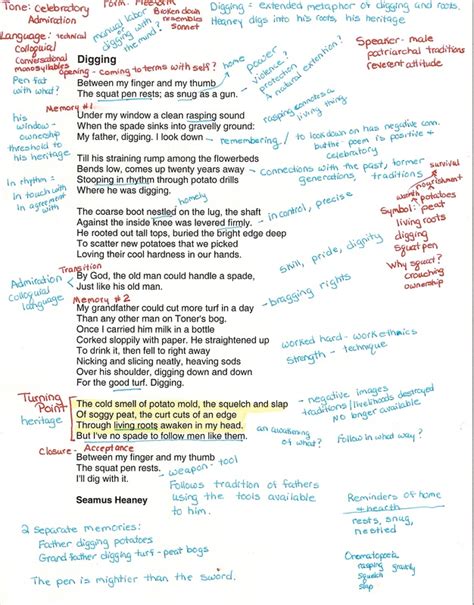 Tone: Celebratory
Admiration
Form: Free
Broken down
resembles
sonnet
Digging = extended metaphor of digging and roots.
Heaney digs into his roots, his heritage
Language: technical
Colloquial
Conversational
monosyllables
manual labor
or
digging with
the mind?
Speaker - male
patriarchal traditions
reverent attitude
opening - coming to terms with self?
home
power
violence?
protection
a natural extention?
Pen fat
with what?
Digging
Between my finger and my thumb
The squat pen rests; as snug as a gun.
Memory #1
rasping connotes a
living thing
Under my window a clean rasping sound
When the spade sinks into gravelly ground:
My father, digging. I look down
his
window -
ownership
threshold to
his heritage
remembering
to look down on has negative conn.
but the poem is positive +
celebratory
Till his straining rump among the flowerbeds
Bends low, comes up twenty years away
Stooping in rhythm through potato drills
Where he was digging.
connections with the past, former
generations, traditions
survival
nourishment
In rhythm =
in touch with
in agreement
with
homely
warmth
potatoes
Symbol: peat
living roots
digging
squat pen
Why squat?
crouching
ownership
The coarse boot nestled on the lug, the shaft
Against the inside knee was levered firmly.
He rooted out tall tops, buried the bright edge deep
To scatter new potatoes that we picked
Loving their cool hardness in our hands.
in control, precise
skill, pride, dignity
Transition
Admiration
colloquial
language
By God, the old man could handle a spade,
Just like his old man.
bragging rights
Memory #2
My grandfather could cut more turf in a day
Than any other man on Toner's bog.
Once I carried him milk in a bottle
Corked sloppily with paper. He straightened up
To drink it, then fell to right away
Nicking and slicing neatly, heaving sods
Over his shoulder, digging down and down
For the good turf. Digging.
worked hard - work ethics
strength - technique
Turning
Point
heritage
The cold smell of potato mold, the squelch and slap
Of soggy peat, the curt cuts of an edge
Through living roots awaken in my head.
But I've no spade to follow men like them.
negative images
traditions/livelihoods destroyed
No longer available
an awakening
of what?
Follow in what way?
Closure - Acceptance
Between my finger and my thumb
The squat pen rests.
I'll dig with it.
weapon - tool
Follows tradition of fathers
using the tools available
to him.
Seamus Heaney
Reminders of home
+ hearth
nests, snug,
nestled
2 separate memories:
Father digging potatoes
Grandfather digging turf - peat bogs
Onematopoeia
rasping gravelly
squelch
slap
The pen is mightier than the sword.